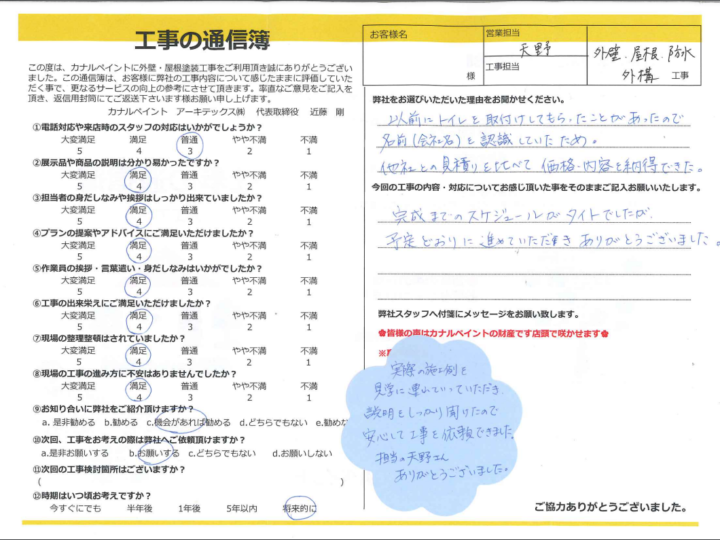 工事の通信簿
この度は、カナルペイントに外壁・屋根塗装工事をご利用頂き誠にありがとうござい
ました。この通信簿は、お客様に弊社の工事内容について感じたままに評価していた
だく事で、更なるサービスの向上の参考にさせて頂きます。率直なご意見をご記入を
頂き、返信用封筒にてご返送下さいます様お願い申し上げます。
カナルペイント　アーキテックス㈱　代表取締役　近藤　剛
①電話対応や来店時のスタッフの対応はいかがでしょうか？
大変満足　満足　普通　やや不満　不満
5　4　3　2　1
②展示品や商品の説明は分かり易かったですか？
大変満足　満足　普通　やや不満　不満
5　4　3　2　1
③担当者の身だしなみや挨拶はしっかり出来ていましたか？
大変満足　満足　普通　やや不満　不満
5　4　3　2　1
④プランの提案やアドバイスにご満足いただけましたか？
大変満足　満足　普通　やや不満　不満
5　4　3　2　1
⑤作業員の挨拶・言葉遣い・身だしなみはいかがでしたか？
大変満足　満足　普通　やや不満　不満
5　4　3　2　1
⑥工事の出来栄えにご満足いただけましたか？
大変満足　満足　普通　やや不満　不満
5　4　3　2　1
⑦現場の整理整頓はされていましたか？
大変満足　満足　普通　やや不満　不満
5　4　3　2　1
⑧現場の工事の進み方に不安はありませんでしたか？
大変満足　満足　普通　やや不満　不満
5　4　3　2　1
⑨お知り合いに弊社をご紹介頂けますか？
a. 是非勧める　b.勧める　c.機会があれば勧める　d.どちらでもない　e.勧めな
⑩次回、工事をお考えの際は弊社へご依頼頂けますか？
a.是非お願いする　b.お願いする　c.どちらでもない　d.お願いしない
⑪次回の工事検討箇所はございますか？
(　)
⑫時期はいつ頃お考えですか？
今すぐにでも　半年後　1年後　5年以内　将来的に
お客様名
様
営業担当
天野
工事担当
外壁・屋根・防水
外構　工事
弊社をお選びいただいた理由をお聞かせください。
以前にトイレを取付けしてもらったことがあったので
名前(会社名)を認識していたため。
他社との見積りを比べて 価格・内容を納得できた。
今回の工事の内容・対応についてお感じ頂いた事をそのままご記入お願いいたします。
完成までのスケジュールがタイトでしたが、
予定どおりに進めていただき ありがとうございました。
弊社スタッフへ付箋にメッセージをお願い致します。
✿皆様の声はカナルペイントの財産です店頭で咲かせます✿
実際の施工例を
見学に連れていっていただき
説明をしっかり聞けたので
安心して工事を依頼できました。
担当の天野さん
ありがとうございました。
ご協力ありがとうございました。